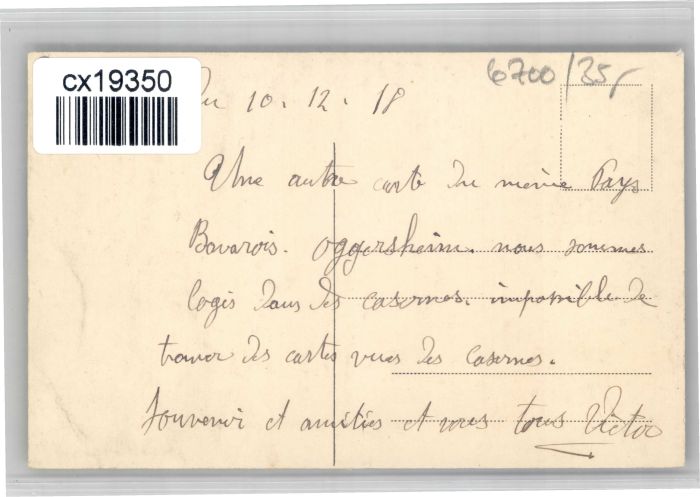 cx19350
6700/35,-
Du 10. 12. 18
Une autre carte du même Pays
Bavarois. Oggersheim. nous sommes
logis dans des casernes. impossible de
trouver des cartes vues des casernes.
Souvenir et amitiés et vous tous Victor